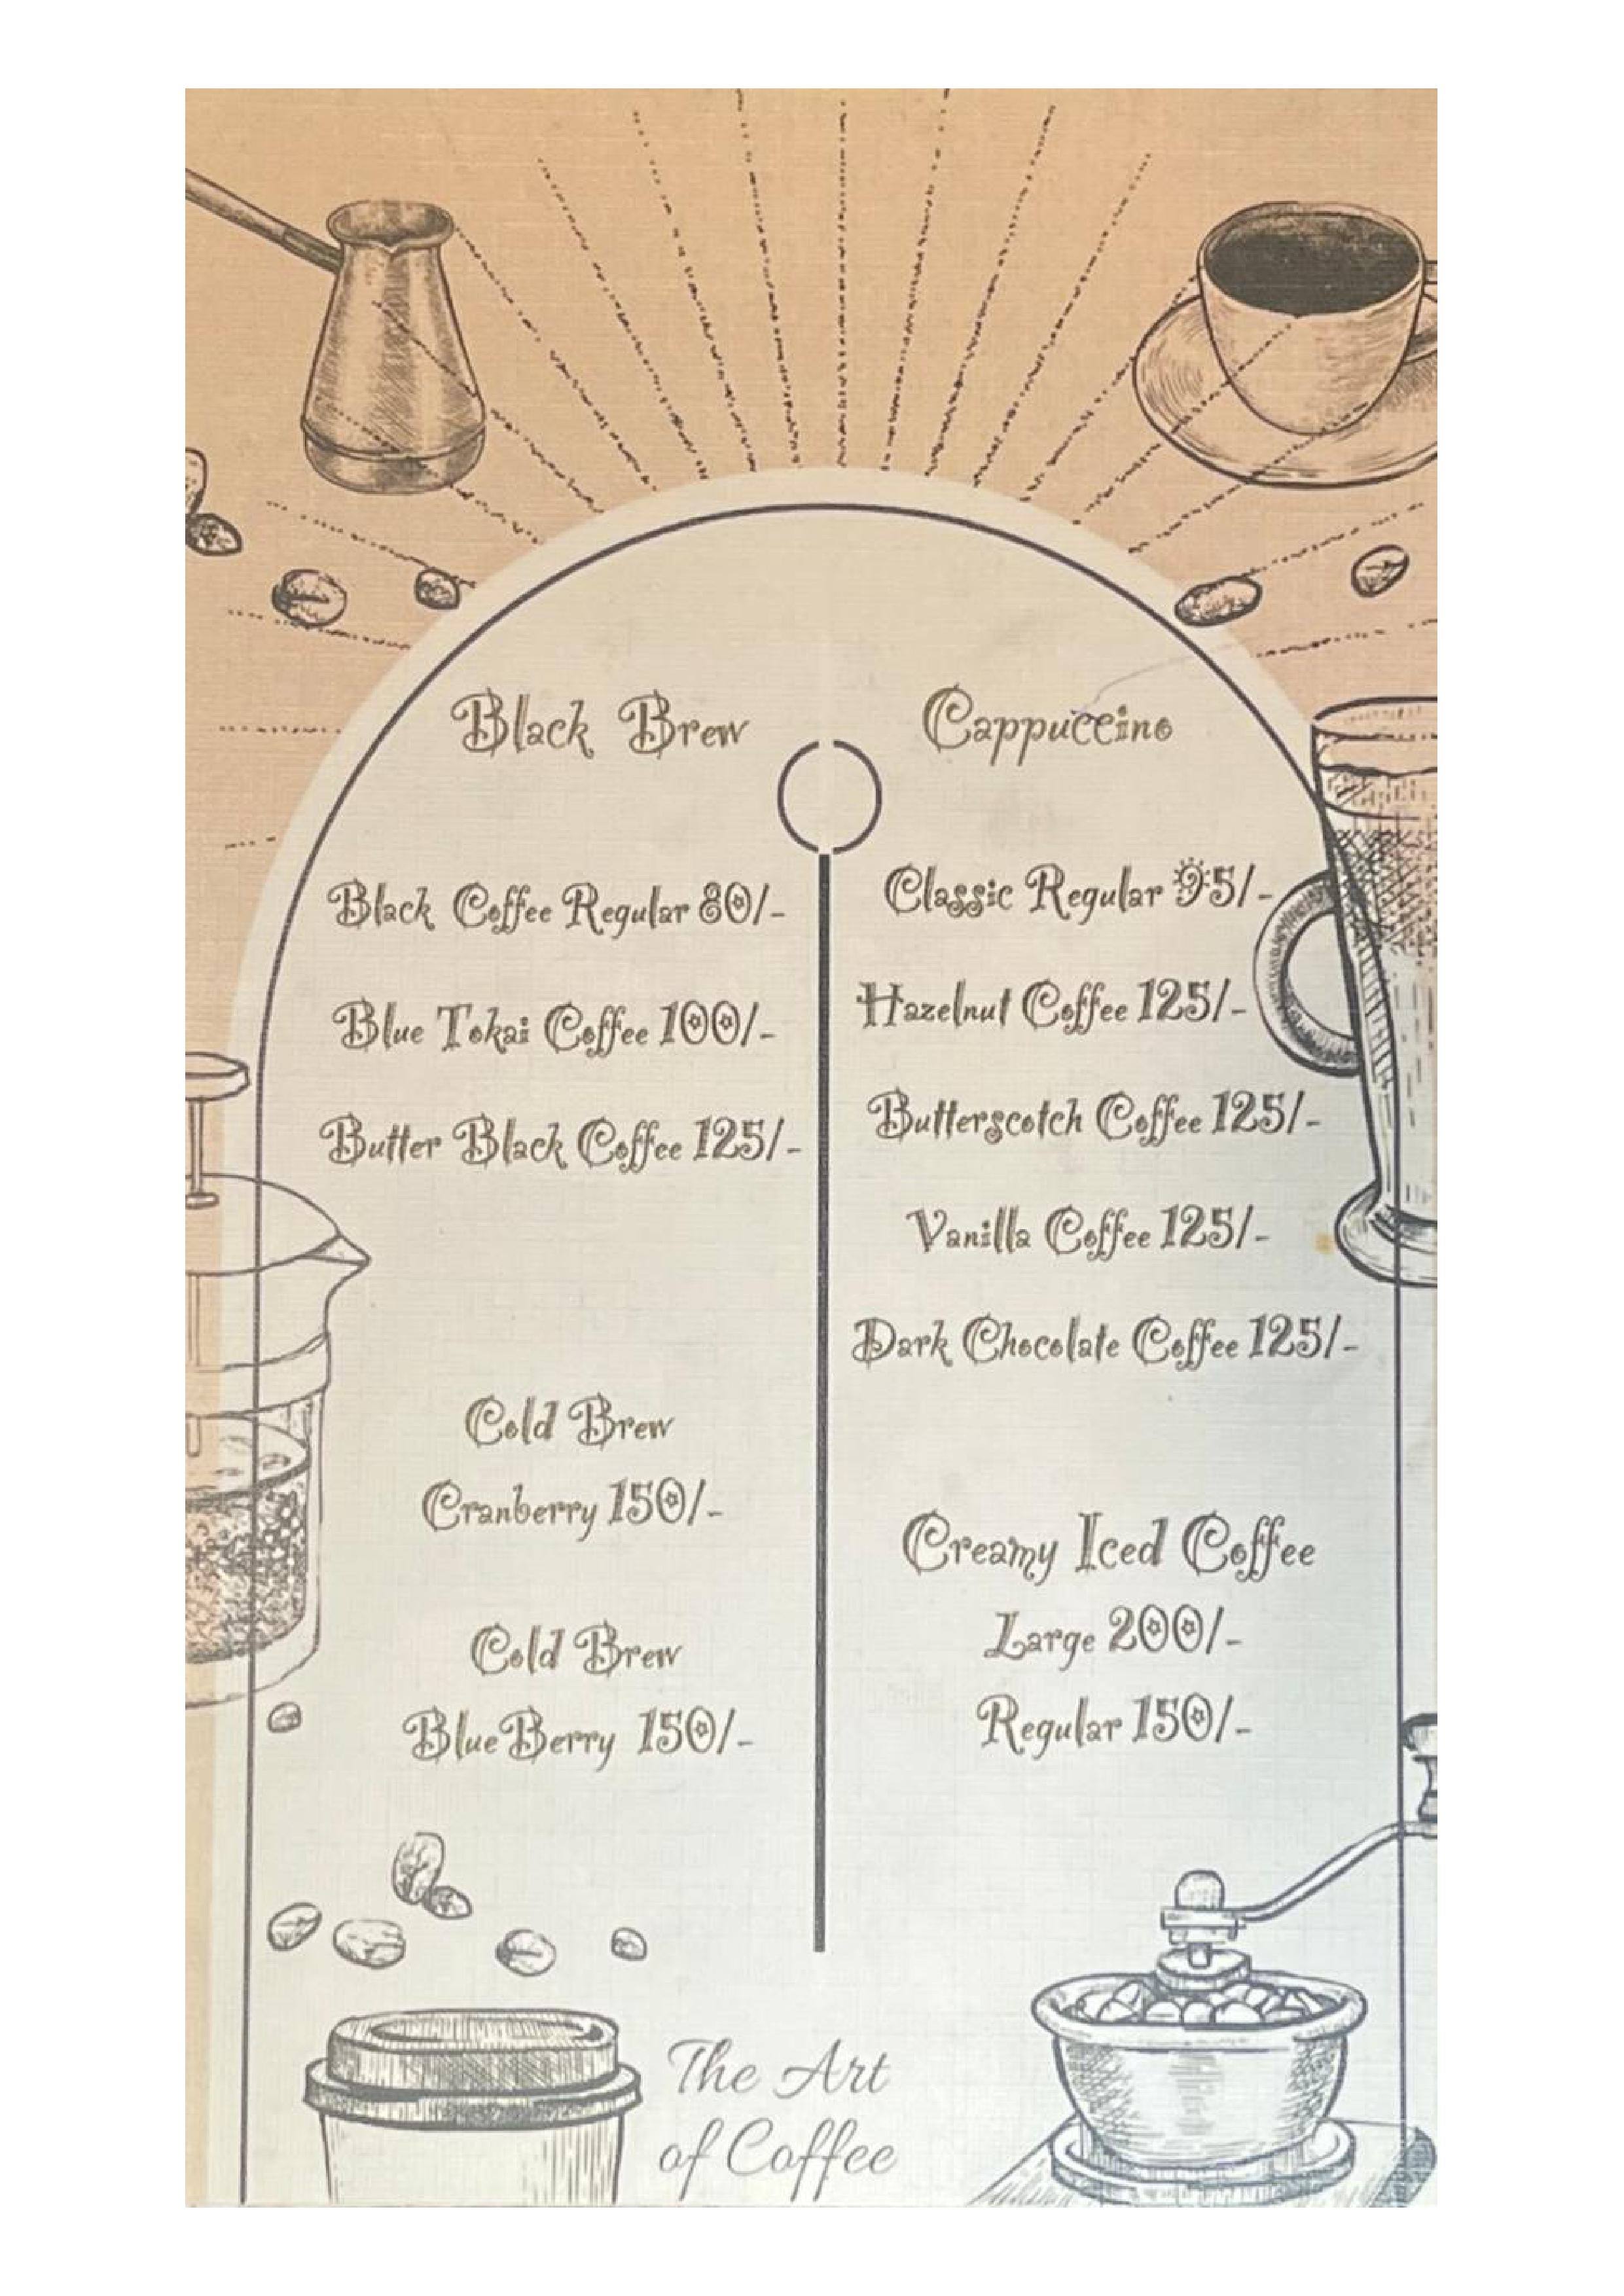 Black Brew
Black Coffee Regular 80/-
Blue Tokai Coffee 100/-
Butter Black Coffee 125/-
Cold Brew
Cranberry 150/-
Cold Brew
BlueBerry 150/-
Cappuccino
Classic Regular 95/-
Hazelnut Coffee 125/-
Butterscotch Coffee 125/-
Vanilla Coffee 125/-
Dark Chocolate Coffee 125/-
Creamy Iced Coffee
Large 200/-
Regular 150/-
The Art
of Coffee